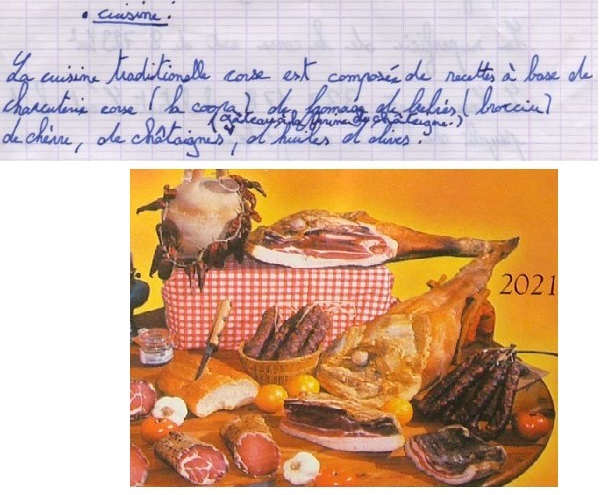 • cuisine :
La cuisine traditionelle corse est composée de recettes à base de
charcuterie corse (la coopa) du fromage de brebis (brocciu)
(gâteaux à la farine de châtaigne.)
de chèvre, de châtaignes, d huiles d olives.
2021